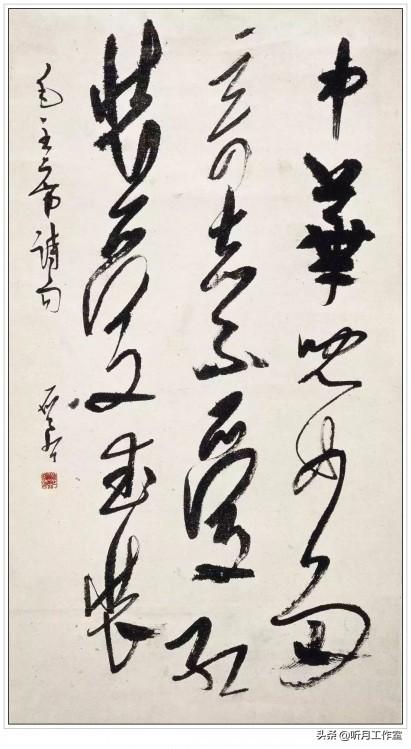 中華兒女多
奇志不愛紅
裝愛武裝
毛主席詩句
头条 @听月工作室